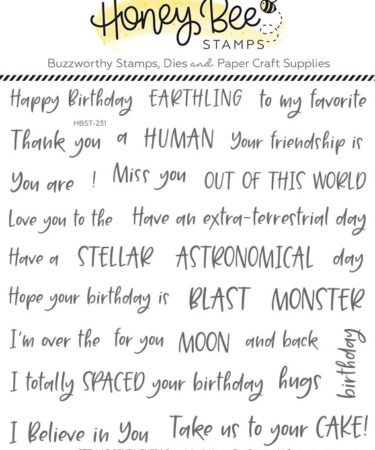 Honey Bee
STAMPS
Buzzworthy Stamps, Dies and Paper Craft Supplies
Happy Birthday EARTHLING to my favorite
HBST-231
Thank you a HUMAN Your friendship is
You are ! Miss you OUT OF THIS WORLD
Love you to the Have an extra-terrestrial day
Have a STELLAR ASTRONOMICAL day
Hope your birthday is BLAST MONSTER
I'm over the for you MOON and back
birthday
I totally SPACED your birthday hugs
I Believe in You Take us to your CAKE!